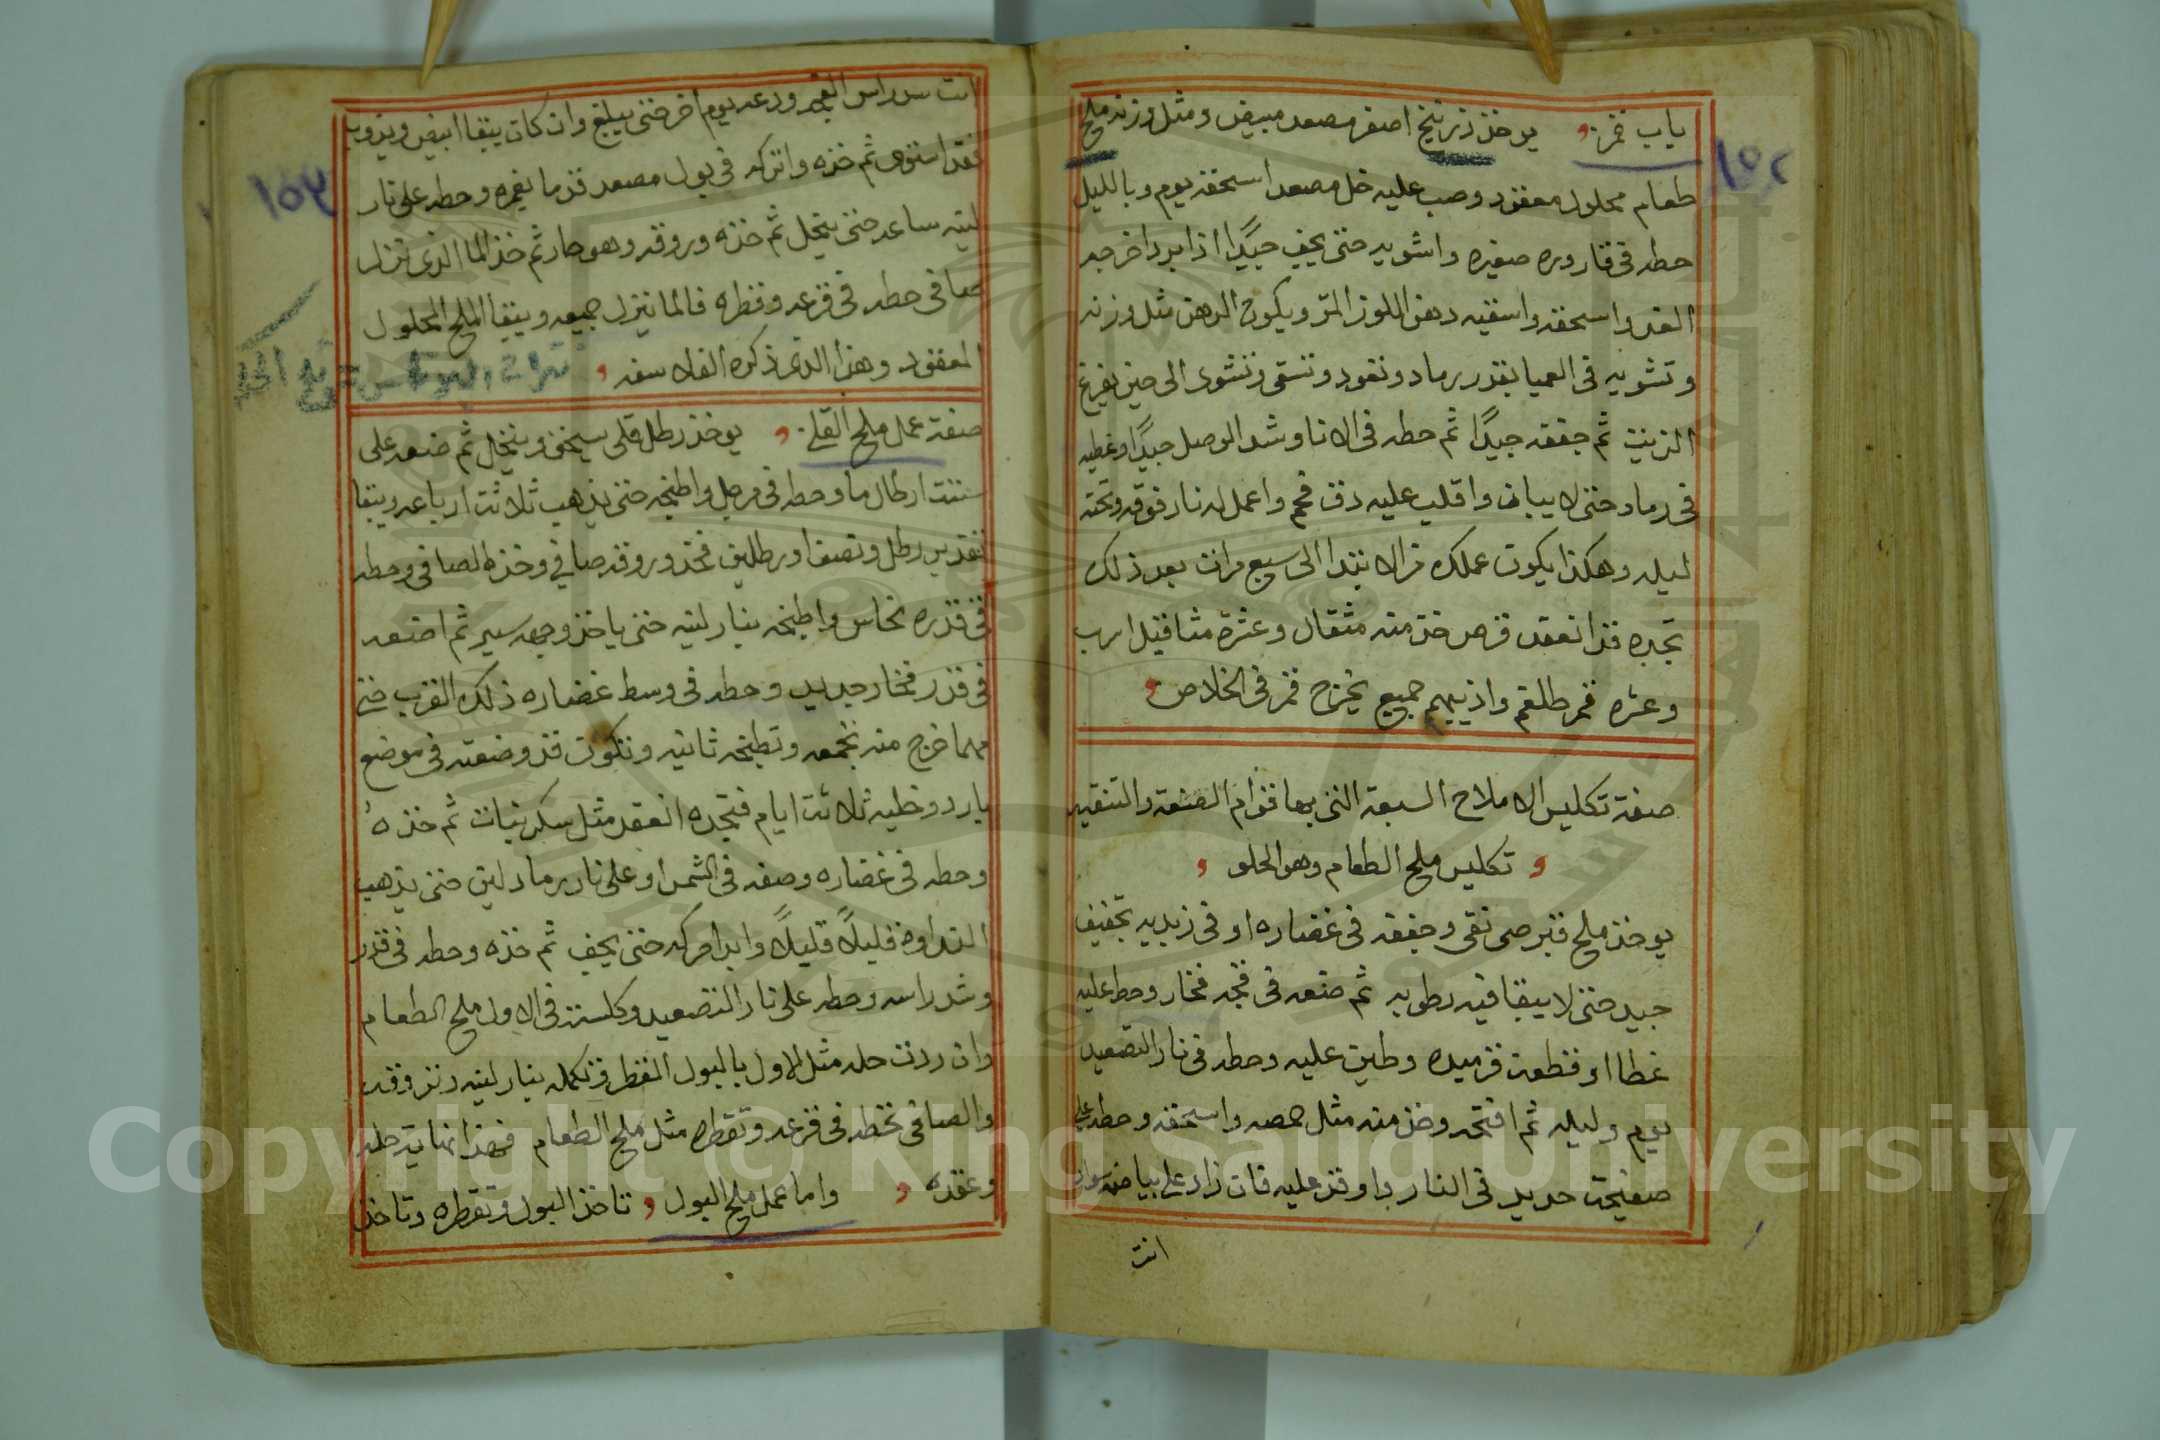 ١٥٢
باب قمر يوخذ زرنيخ اصفر مصعد مبيض ومثل وزنه ملح
طعام محلول معقود وصب عليه خل مصعد اسحقه يوم وبالليل
حطه في قاروره صغيره واشويه حتى يجف جيدًا اذا برد اخرجه
الغد واسحقه واسقيه دهن اللوز المر ويكون الدهن مثل وزنه
وتشويه في العميا بقدر رماد وتعود وتسقي وتشوى الى حين يفرغ
الزيت ثم جففه جيدًا ثم حطه في الانا وشد الوصل جيدًا وغطيه
في رماد حتى لا يبان واقلب عليه دق فحم واعمل له نار فوقه وتحته
ليله وهكذا يكون عملك من الابتدا الى سبع مرات بعد ذلك
تجده قد انعقد قرص خذ منه مثقال وعشرة مثاقيل اسرب
وعشره قمر طلقم واذيبهم جميع يخرج قمر في الخلاص
صفة تكليس الاملاح السبعة التي بها قوام الصنعة والتنقيه
تكليس ملح الطعام وهو الحلو
يوخذ ملح قبرصي نقي وجففه في غضاره او في زبديه تجفيف
جيد حتى لا يبقا فيه رطوبه ثم ضعه في قحبه فخار وحط عليه
غطا او قطعة قرميده وطين عليه وحطه في نار التصعيد
يوم وليله ثم افتحه وخذ منه مثل حمصه واسحقه وحطه على
صفيحة حديد في النار واوقد عليه فان زاد على بياضه وان
انت
١٥٣
فقد استوى ثم خذه واتركه في بول مصعد قدر ما يغمره وحطه على نار
لينه ساعه حتى ينحل ثم خذه وروقه وهو حار ثم خذ الما الذي نزل
صافي حطه في قرعه وقطره فالما ينزل جميعه ويبقا الملح المحلول
المعقود وهذا الذي ذكره الفلاسفه
صفة عمل ملح القلي يوخذ رطل قلي يسحق وينخل ثم ضعه على
ستت ارطال ما وحطه في مرجل واطبخه حتى يذهب ثلاثت ارباعه ويبقا
تقدير رطل ونصف او رطلين فخذ وروقه صافي وخذ الصافي وحطه
في قدره نحاس واطبخه بنار لينه حتى ياخذ وجهه سير ثم اضعه
في قدر فخار جديد وحطه في وسط غضاره ذلك القرب حتى
مهما خرج منه تجمعه وتطبخه ثانيه وتكون قد وضعته في موضع
بارد وخليه ثلاثت ايام فتجده انعقد مثل سكر نبات ثم خذه
وحطه في غضاره وضعه في الشمس او على نار رماد لين حتى يذهب
النداوه قليلاً قليلاً وابدا حركه حتى يجف ثم خذه وحطه في قدر
وشد راسه وحطه على نار التصعيد وكلسته في الاول ملح الطعام
وان ردت حله مثل الاول بالبول المقطر فتكمله بنار لينه وتروقه
والصافي تحطه في قرعه وتقطره مثل ملح الطعام فهذا نهاية حله
وعقده واما عمل ملح البول تاخذ البول وتقطره وتاخذ